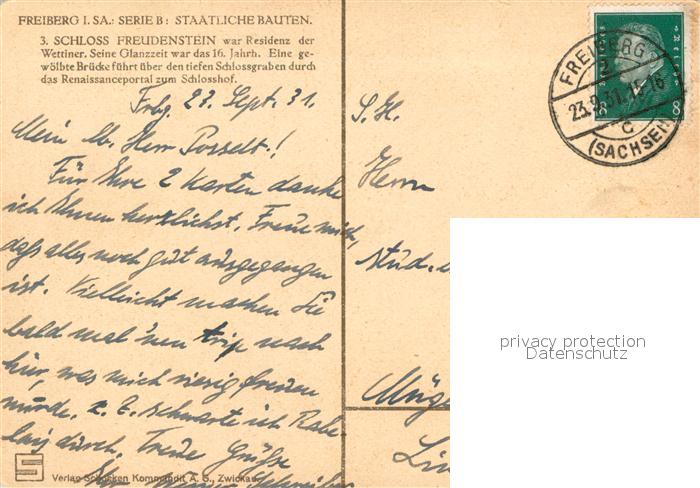 FREIBERG I. SA.: SERIE B: STAATLICHE BAUTEN.
3. SCHLOSS FREUDENSTEIN war Residenz der
Wettiner. Seine Glanzzeit war das 16. Jahrh. Eine ge-
wölbte Brücke führt über den tiefen Schlossgraben durch
das Renaissanceportal zum Schlosshof.
Frbg 23. Sept. 31.
Mein lb. Herr Posselt!
Für Ihre 2 Karten danke
ich Ihnen herzlichst. Freue mich,
daß alles noch gut ausgegangen
ist. Vielleicht machen Sie
bald mal 'nen trip nach
hier, was mich riesig freuen
würde. z. Z. schwarte ich Rabe
durch. Treue Grüße
Ihr
S
Verlag Schocken Kommandit A. G., Zwickau.
S. H.
Herrn
stud.
Lin
FREIBERG
2
23.9.31.
8
8
c
(SACHSEN)
privacy protection
Datenschutz